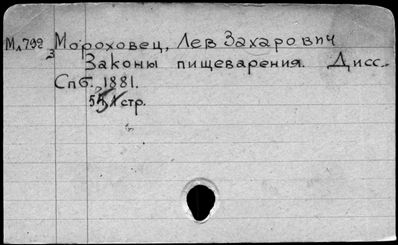 Мл792 Мороховец, Лев Захарович
3 Законы пищеварения. Дисс.
Спб., 1881.
стр.